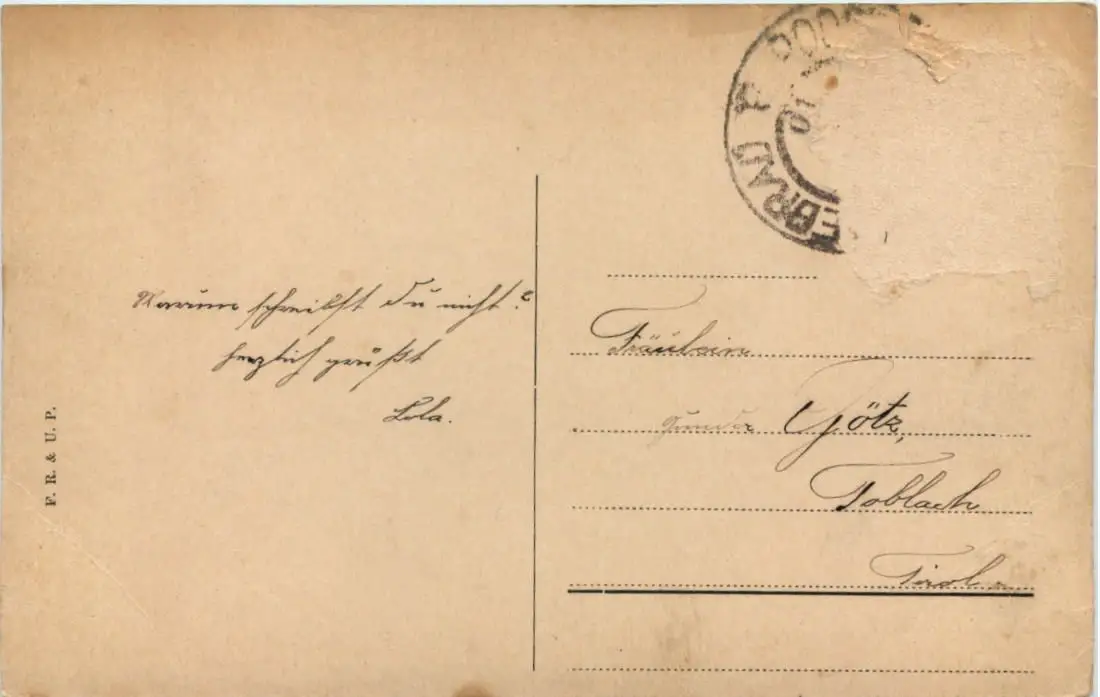 Warum schreibst Du nicht?
herzlich grüßt
Lola.
F. R. & U. P.
Fräulein
Götz,
Toblach
Tirol